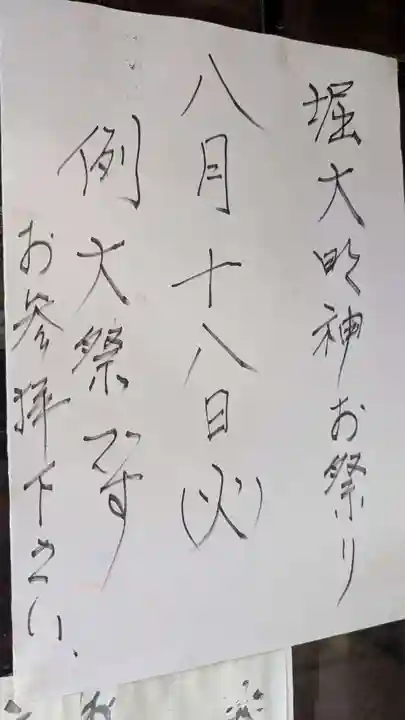 堀大明神お祭り
八月十八日(火)
例大祭です
お参拝下さい、